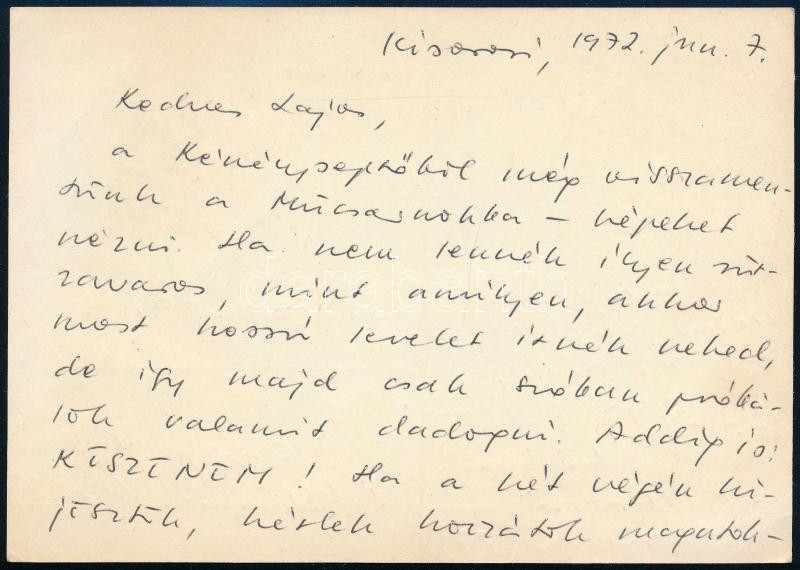 Kisoroszi, 1972. jun. 7.
Kedves Lajos,
a Kéményseprőből még visszamen-
tünk a Műcsarnokba – képeket
nézni. Ha nem lennék ilyen
zavaros, mint amilyen, akkor
most hosszú levelet írnék neked,
de így majd csak szóban próbá-
lok valamit dadogni. Addig is:
KÖSZÖNÖM! Ha a hét végén ki-
jösztök, kérlek hozzátok magatok-
darabanth